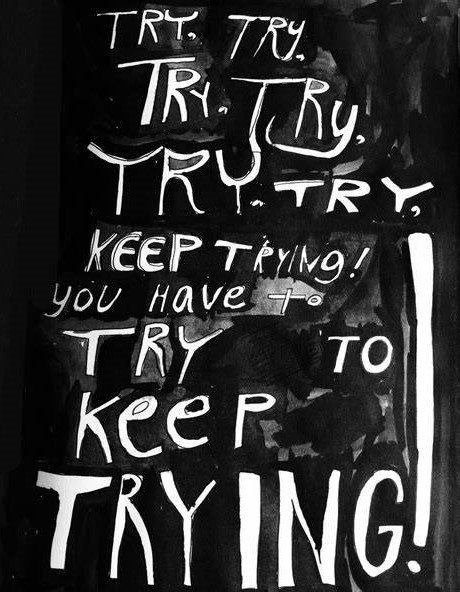 TRY, TRY,
TRY, TRy,
TRY, TRY,
KEEP TRYINg!
you Have to
TRY TO
KeeP
TRYING!